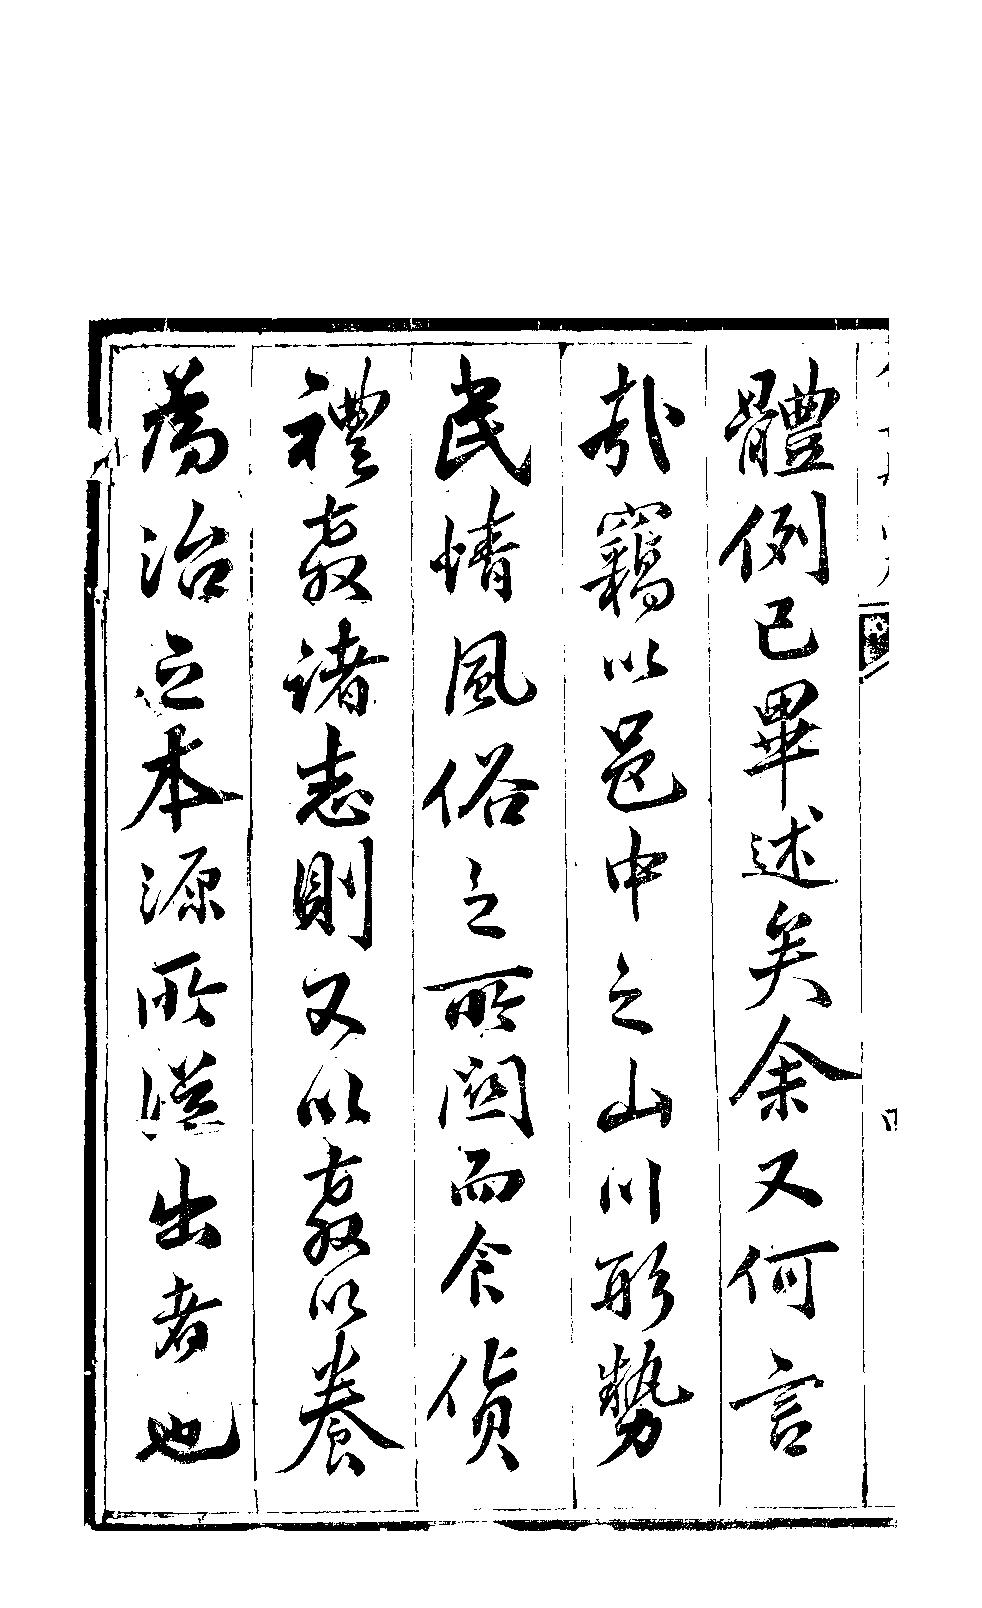 體例已畢述矣余又何言
哉竊以邑中之山川形勢
民情風俗之所關而食貨
禮教諸志則又以教以養
為治之本源所從出者也
四